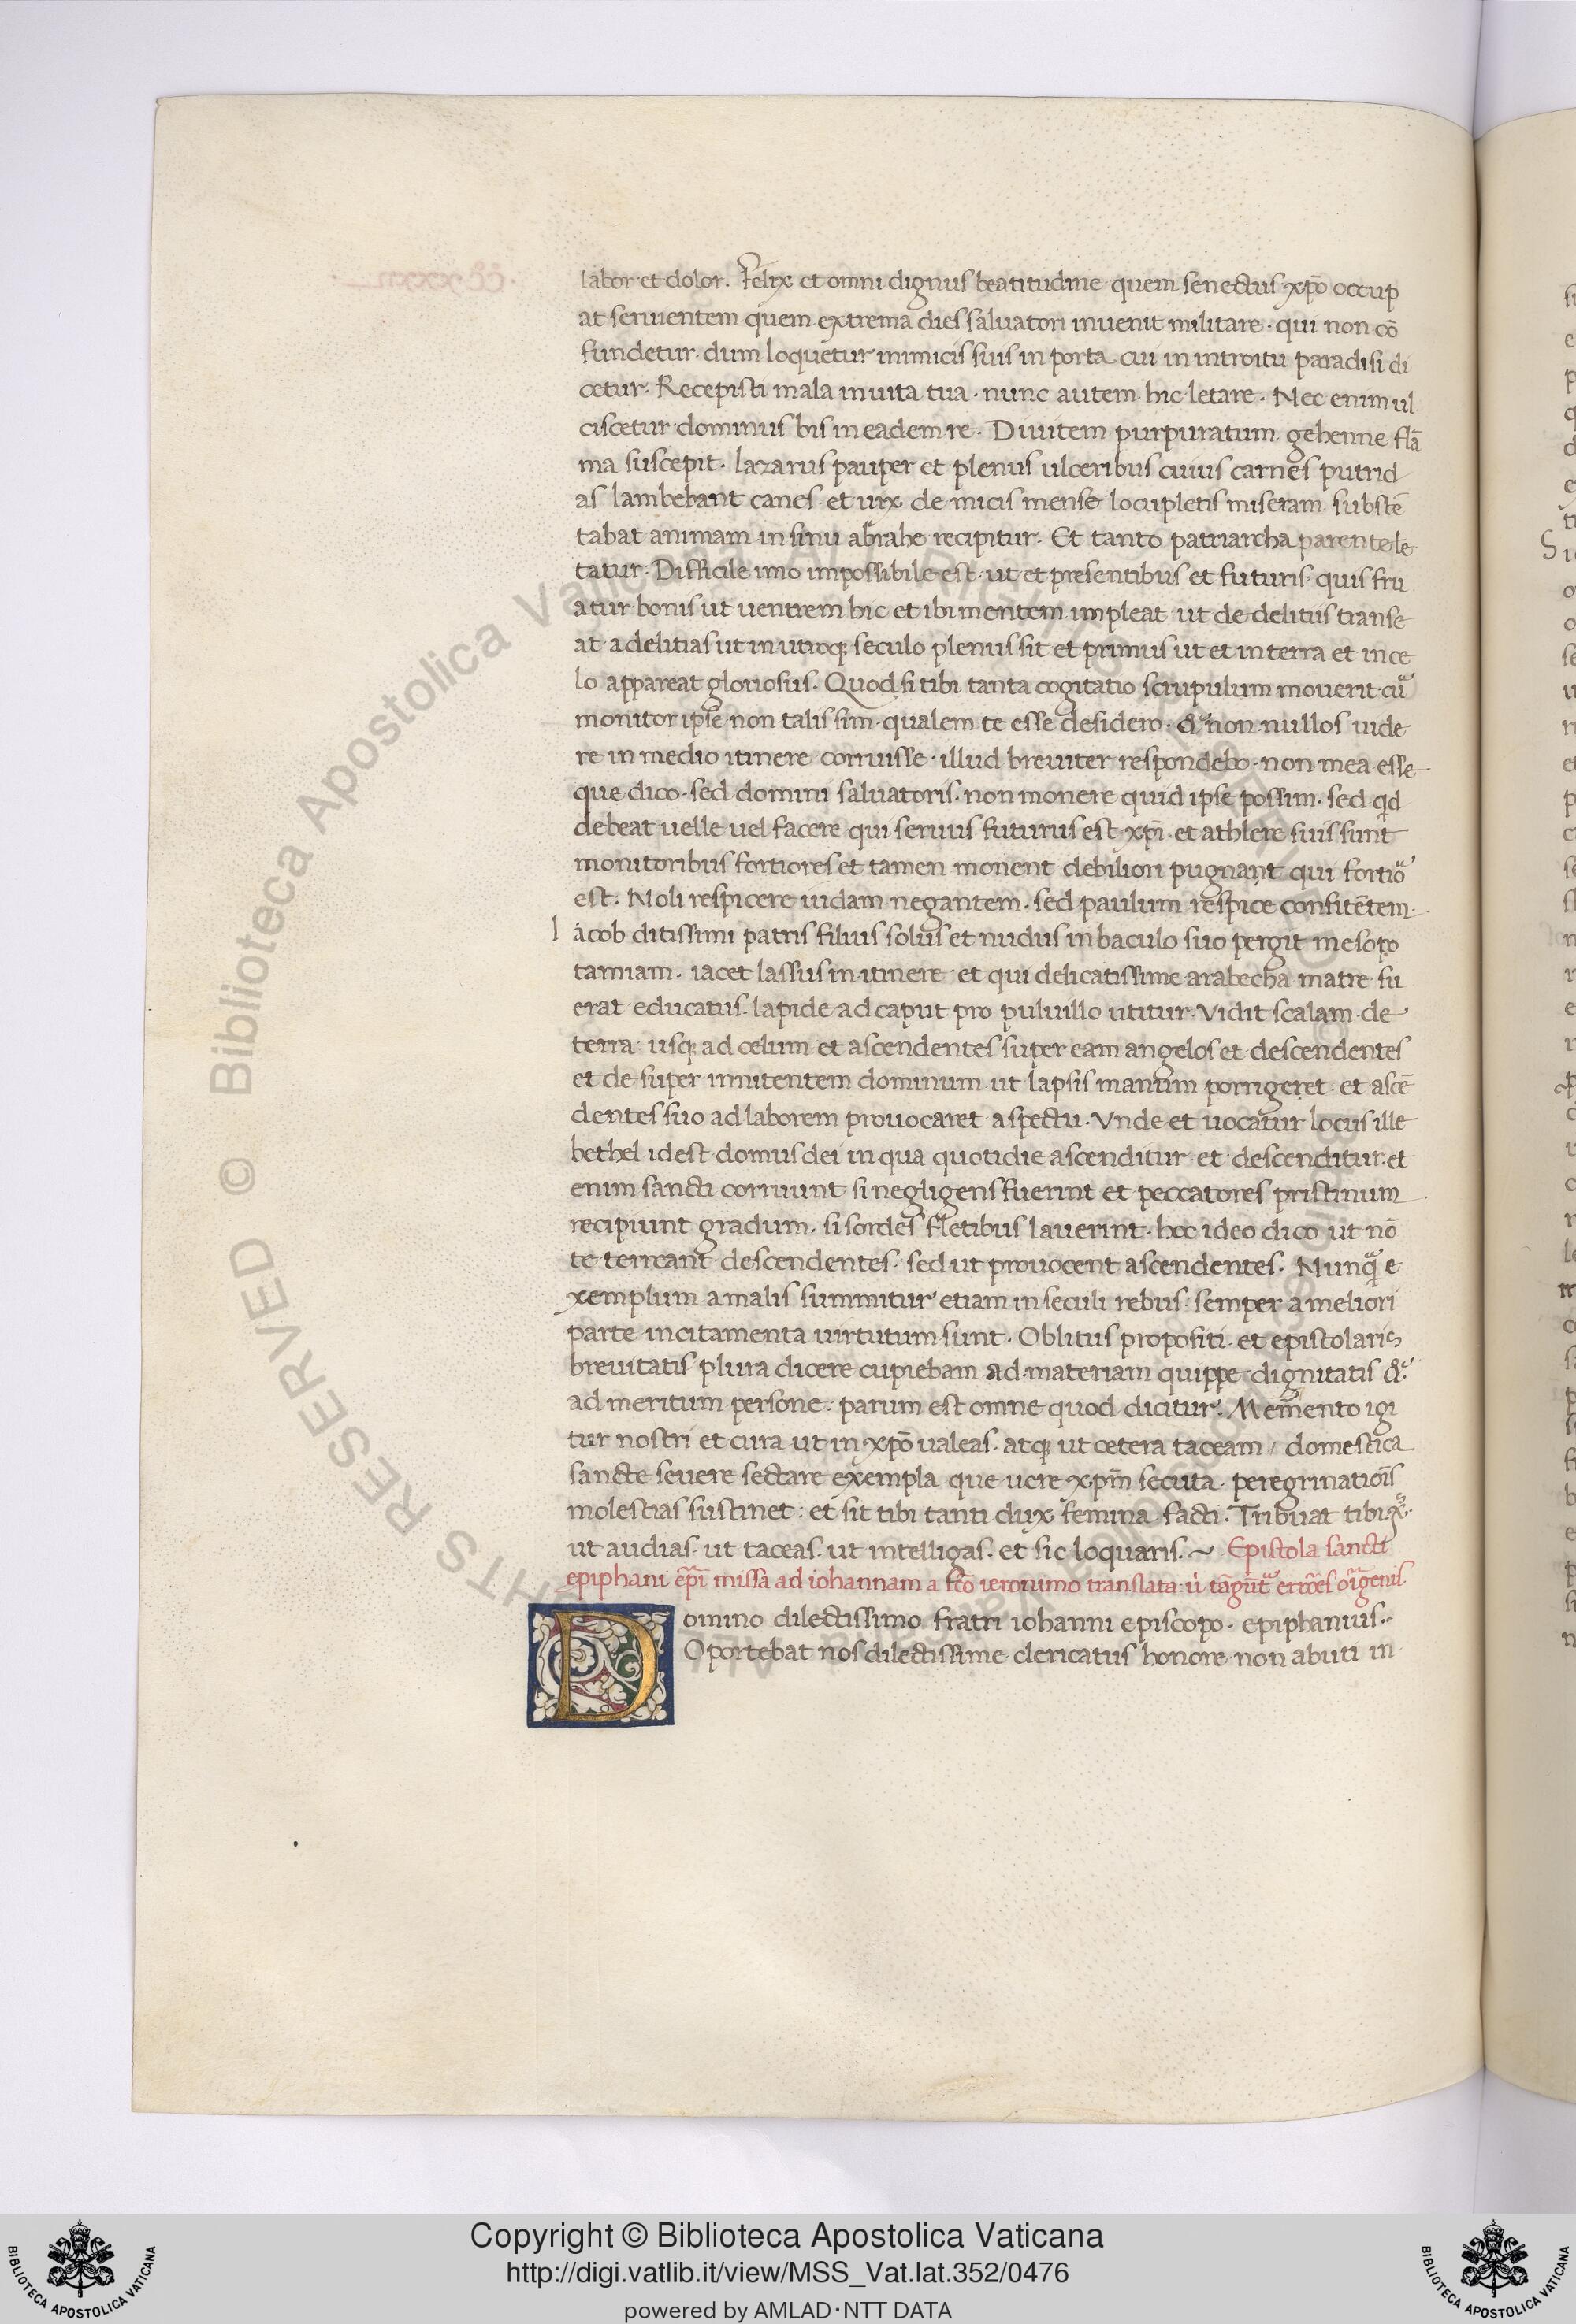 labor et dolor. Felix et omni dignus beatitudine quem senectus xp̄o occup
at seruientem quem extrema dies saluatori inuenit militare · qui non cō
fundetur · dum loquetur inimicis suis in porta cui in introitu paradisi di
cetur · Recepisti mala in uita tua · nunc autem hic letare · Nec enim ul
ciscetur dominus bis in eadem re · Diuitem purpuratum gehenne flā
ma suscepit · lazarus pauper et plenus ulceribus cuius carnes putrid
as lambebant canes · et uix de micis mense locupletis miseram substē
tabat animam in sinu abrahe recipitur · Et tanto patriarcha parente le
tatur · Difficile imo impossibile est · ut et presentibus et futuris quis fru
atur bonis ut uentrem hic et ibi mentem impleat ut de delitiis transe
at ad delitias ut in utroq; seculo plenus sit et primus ut et in terra et in ce
lo appareat gloriosus · Quod si tibi tanta cogitatio scrupulum mouerit cur
monitor ipse non talis sim · qualem te esse desidero · & non nullos uide
re in medio itinere corruisse · illud breuiter respondebo · non mea esse
que dico · sed domini saluatoris · non monere quid ipse possim · sed qd
debeat uelle uel facere qui seruus futurus est xp̄i · et athlete suis sunt
monitoribus fortiores et tamen monent debiliori pugnant qui fortior
est · Noli respicere iudam negantem · sed paulum respice confitētem
Iacob ditissimi patris filius solus et nudus in baculo suo pergit mesopo
tamiam · iacet lassus in itinere · et qui delicatissime a rabecha matre fu
erat educatus · lapide ad caput pro puluillo utitur · Vidit scalam de
terra usq; ad celum et ascendentes super eam angelos et descendentes
et de super innitentem dominum ut lapsis manum porrigeret · et ascē
dentes suo ad laborem prouocaret aspectu · Vnde et uocatur locus ille
bethel idest domus dei in qua quotidie ascenditur et descenditur · et
enim sancti corruunt si negligens fuerint et peccatores pristinum
recipiunt gradum · si sordes fletibus lauerint · hoc ideo dico ut nō
te terreant descendentes · sed ut prouocent ascendentes · Nunq̄ e
xemplum a malis summitur etiam in seculi rebus · semper a meliori
parte incitamenta uirtutum sunt · Oblitus propositi · et epistolaris
breuitatis plura dicere cupiebam ad materiam quippe dignitatis &
ad meritum persone · parum est omne quod dicitur · Memento igi
tur nostri et cura ut in xp̄o ualeas · atq; ut cetera taceam / domestica
sancte seuere sectare exempla que uere xp̄m secuta · peregrinatiōis
molestias sustinet : et sit tibi tanti dux femina facti · Tribuat tibi xp̄s
ut audias · ut taceas · ut intelligas · et sic loquaris · ~ Epistola sancti
epiphani ēpi missa ad iohannam a scō ieronimo translata: ū tāgūtur errōes origenis ·
Domino dilectissimo fratri iohanni episcopo · epiphanius ·
Oportebat nos dilectissime clericatus honore non abuti in
© Biblioteca Apostolica Vaticana ALL RIGHTS RESERVED
Copyright © Biblioteca Apostolica Vaticana
http://digi.vatlib.it/view/MSS_Vat.lat.352/0476
powered by AMLAD·NTT DATA
BIBLIOTECA APOSTOLICA VATICANA
BIBLIOTECA APOSTOLICA VATICANA